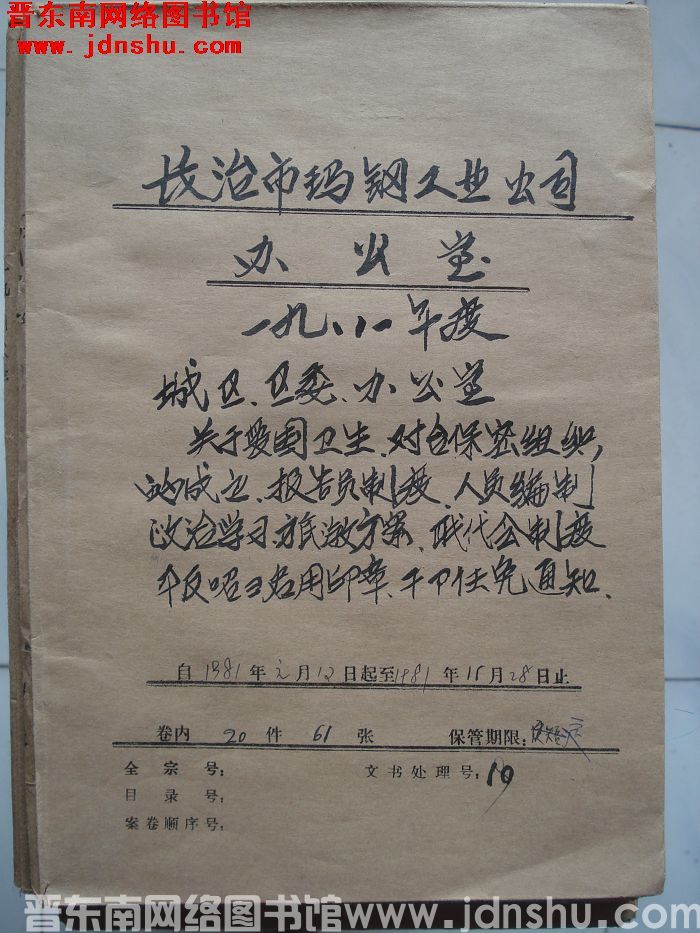 晋东南网络图书馆
www.jdnshu.com
长治市玛钢工业公司
办公室
一九八一年度
城卫、卫委、办公室
关于爱国卫生、对台保密组织,
的成立、报告员制度、人员编制
政治学习、方案、职代会制度
平反昭 启用印章、干卫任免通知.
自1981年元月12日起至1981年 月28日止
卷内 20 件 61 张 保管期限:
全宗号: 文书处理号:10
目录号:
案卷顺序号:
晋东南网络图书馆 www.jdnshu.com